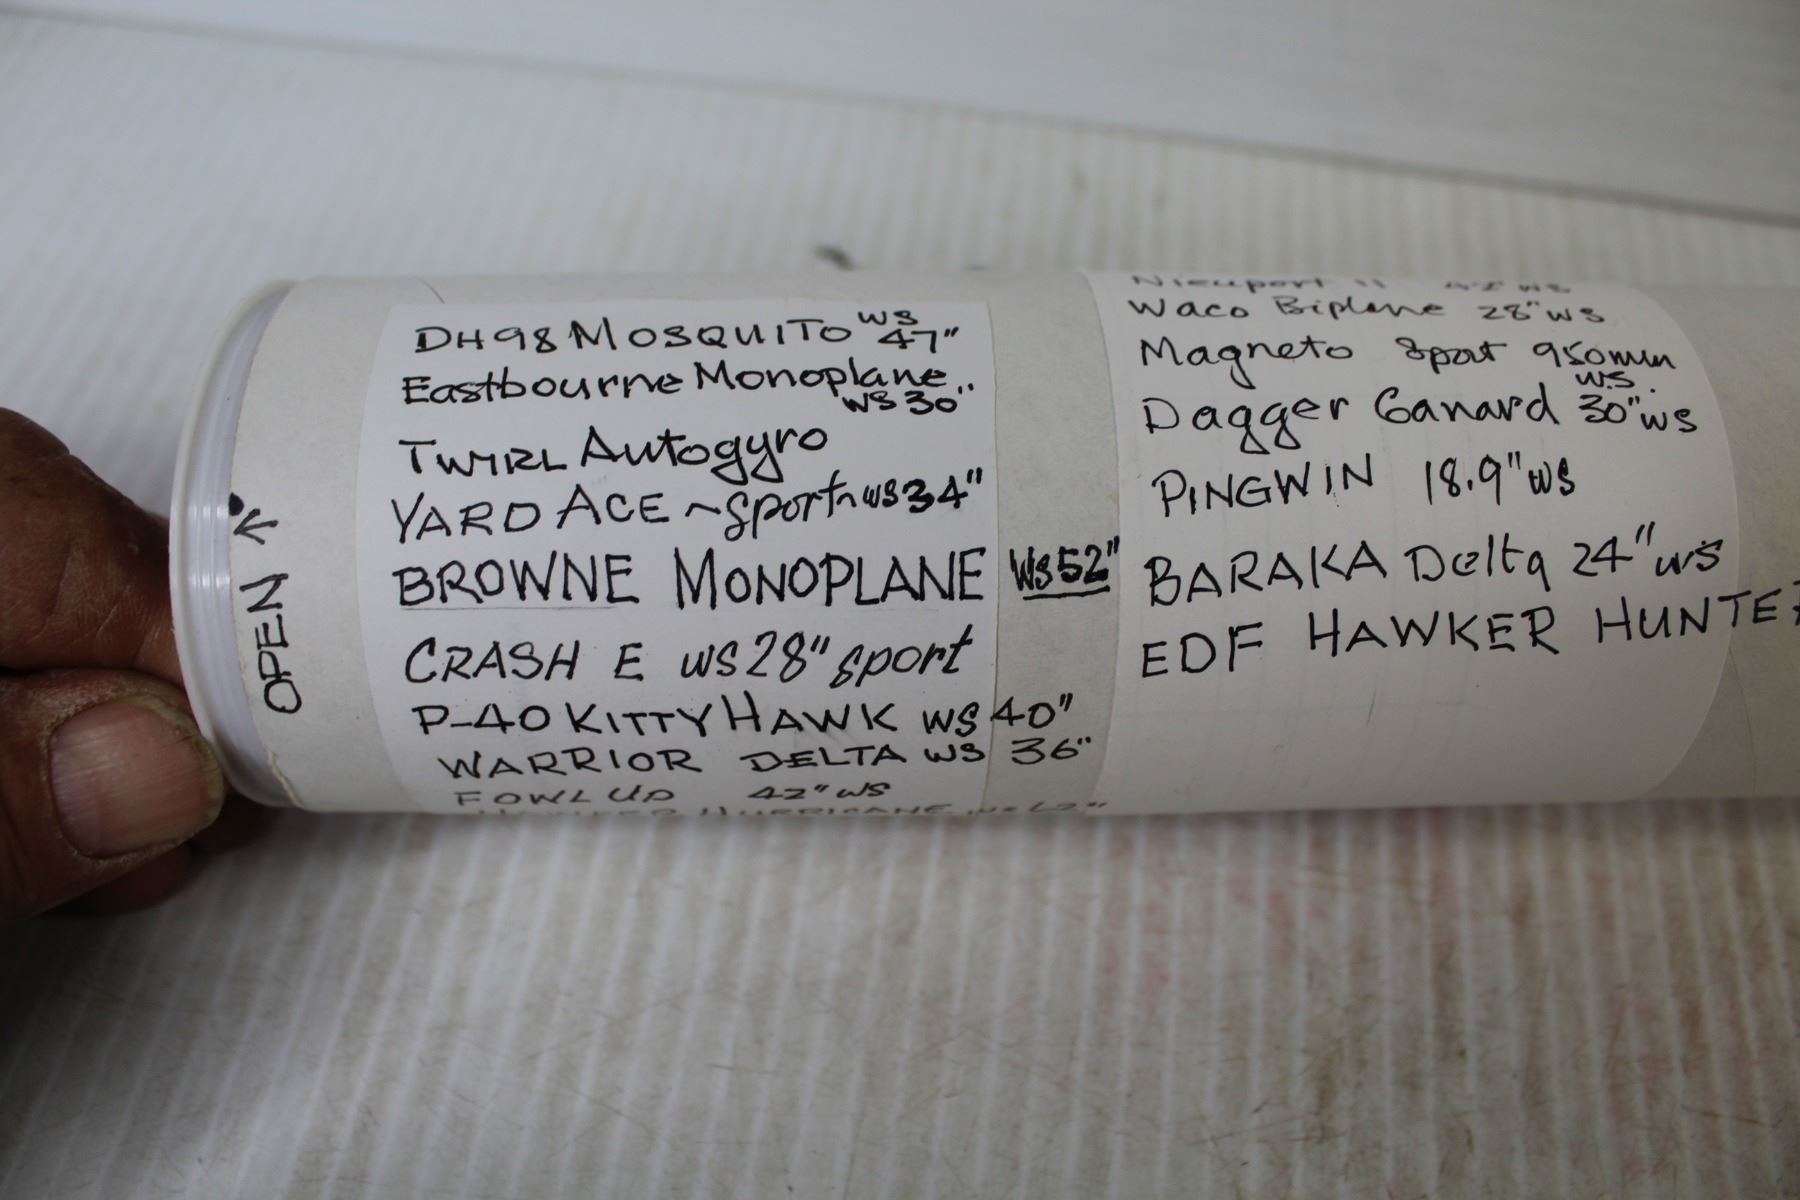 OPEN
DH98 MOSQUITO WS 47"
Eastbourne Monoplane
WS 30"
TWIRL Autogyro
YARD ACE ~ Sport ~ WS 34"
BROWNE MONOPLANE WS 52"
CRASH E WS 28" Sport
P-40 KITTYHAWK WS 40"
WARRIOR DELTA WS 36"
FOWL UP 42" WS
HAWKER HURRICANE WS
Nieuport 11 42" WS
Waco Biplane 28" WS
Magneto Sport 950mm
WS.
Dagger Canard 30" WS
PINGWIN 18.9" WS
BARAKA Delta 24" WS
EDF HAWKER HUNTER